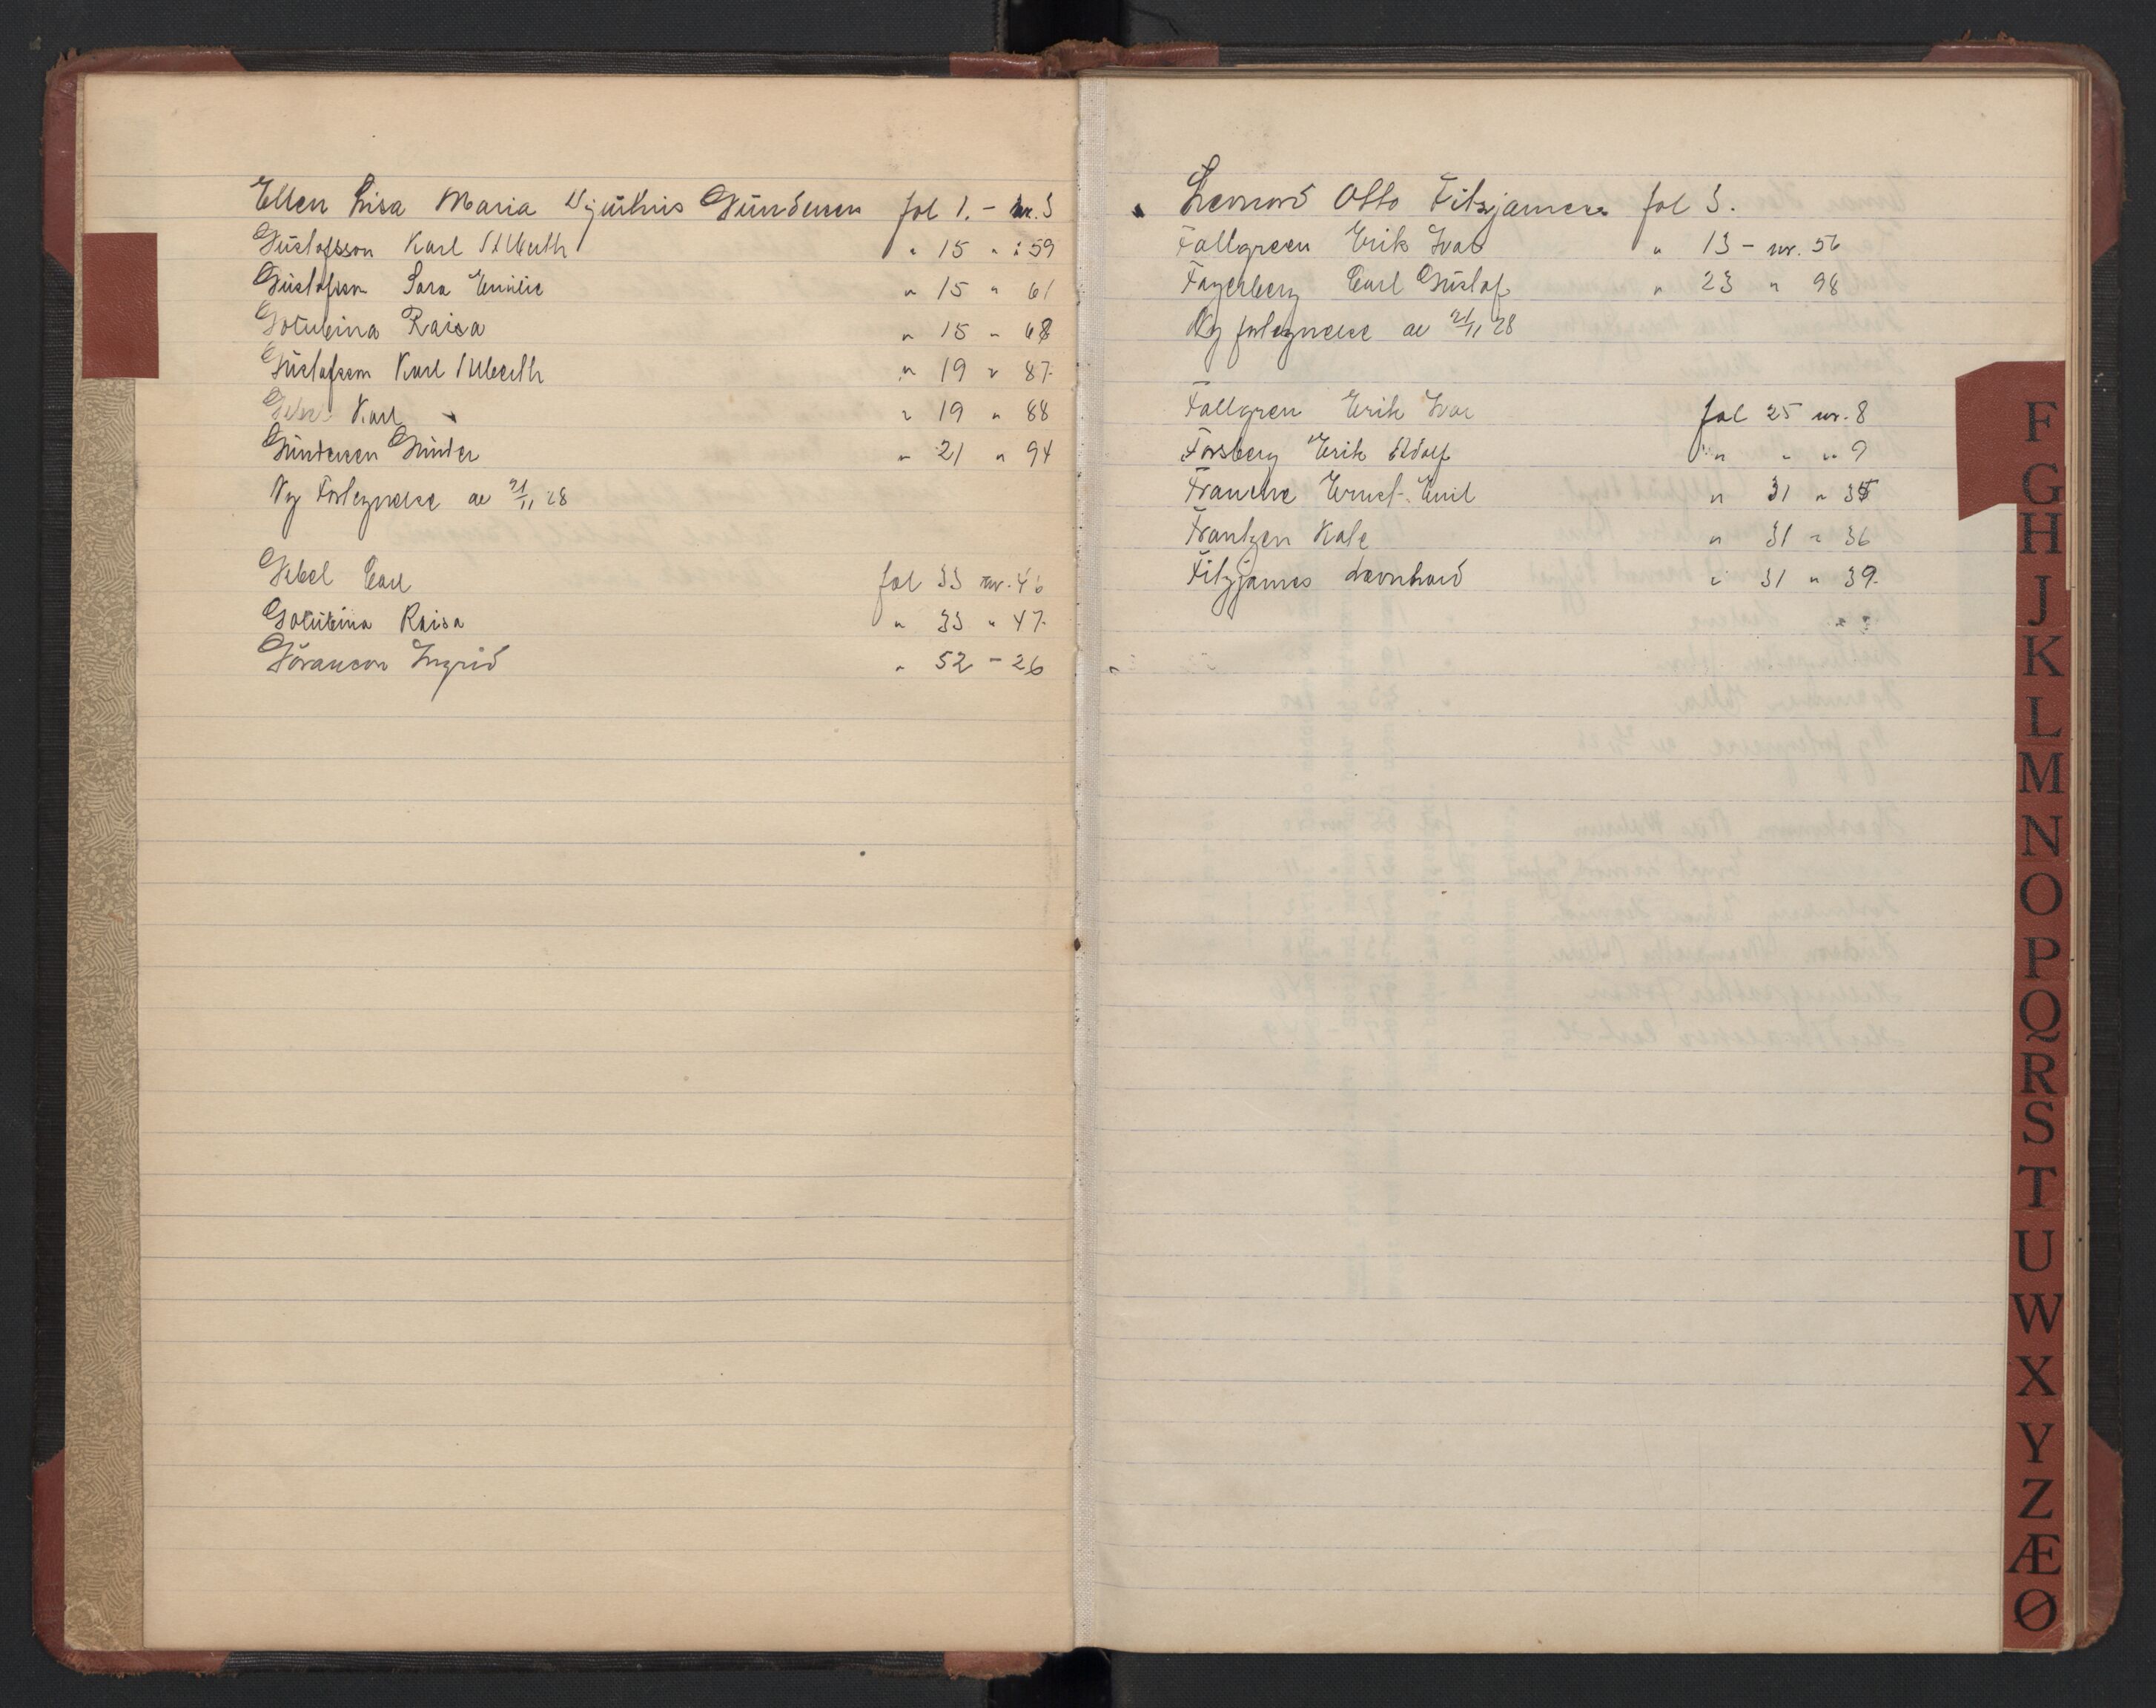 Ellen Lisa Maria Gundersen fol 1. - nr. 3
Gustafsson Karl Alberth " 15 " : 59
Gustafsson Sara Emilie " 15 " 61
Golubina Raisa " 15 " 68
Gustafsson Karl Alberth " 19 " 87.
Karl " 19 " 88
Gundersen Gunder " 21 " 94
Ny Fortegnelse av 21/11 28
Gebel Carl fol 33 nr. 46
Golubina Raisa " 33 " 47.
Göranson Ingrid " 52 - 26
Leonard Otto Fitzjames fol 3.
Fallgreen Erik Ivar " 13 - nr. 56
Fagerberg Carl Gustaf " 23 " 98
Ny fortegnelse av 21/11 28
Fallgren Erik Ivar fol 25 nr. 8
Forsberg Erik Adolf " " " 9
Francke Ernst Emil " 31 " 35
Frantzen Kale " 31 " 36
Fitzjames Leonhard " 31 " 39.
F
G
H
J
K
L
M
N
O
P
Q
R
S
T
U
W
X
Y
Z
Æ
Ø